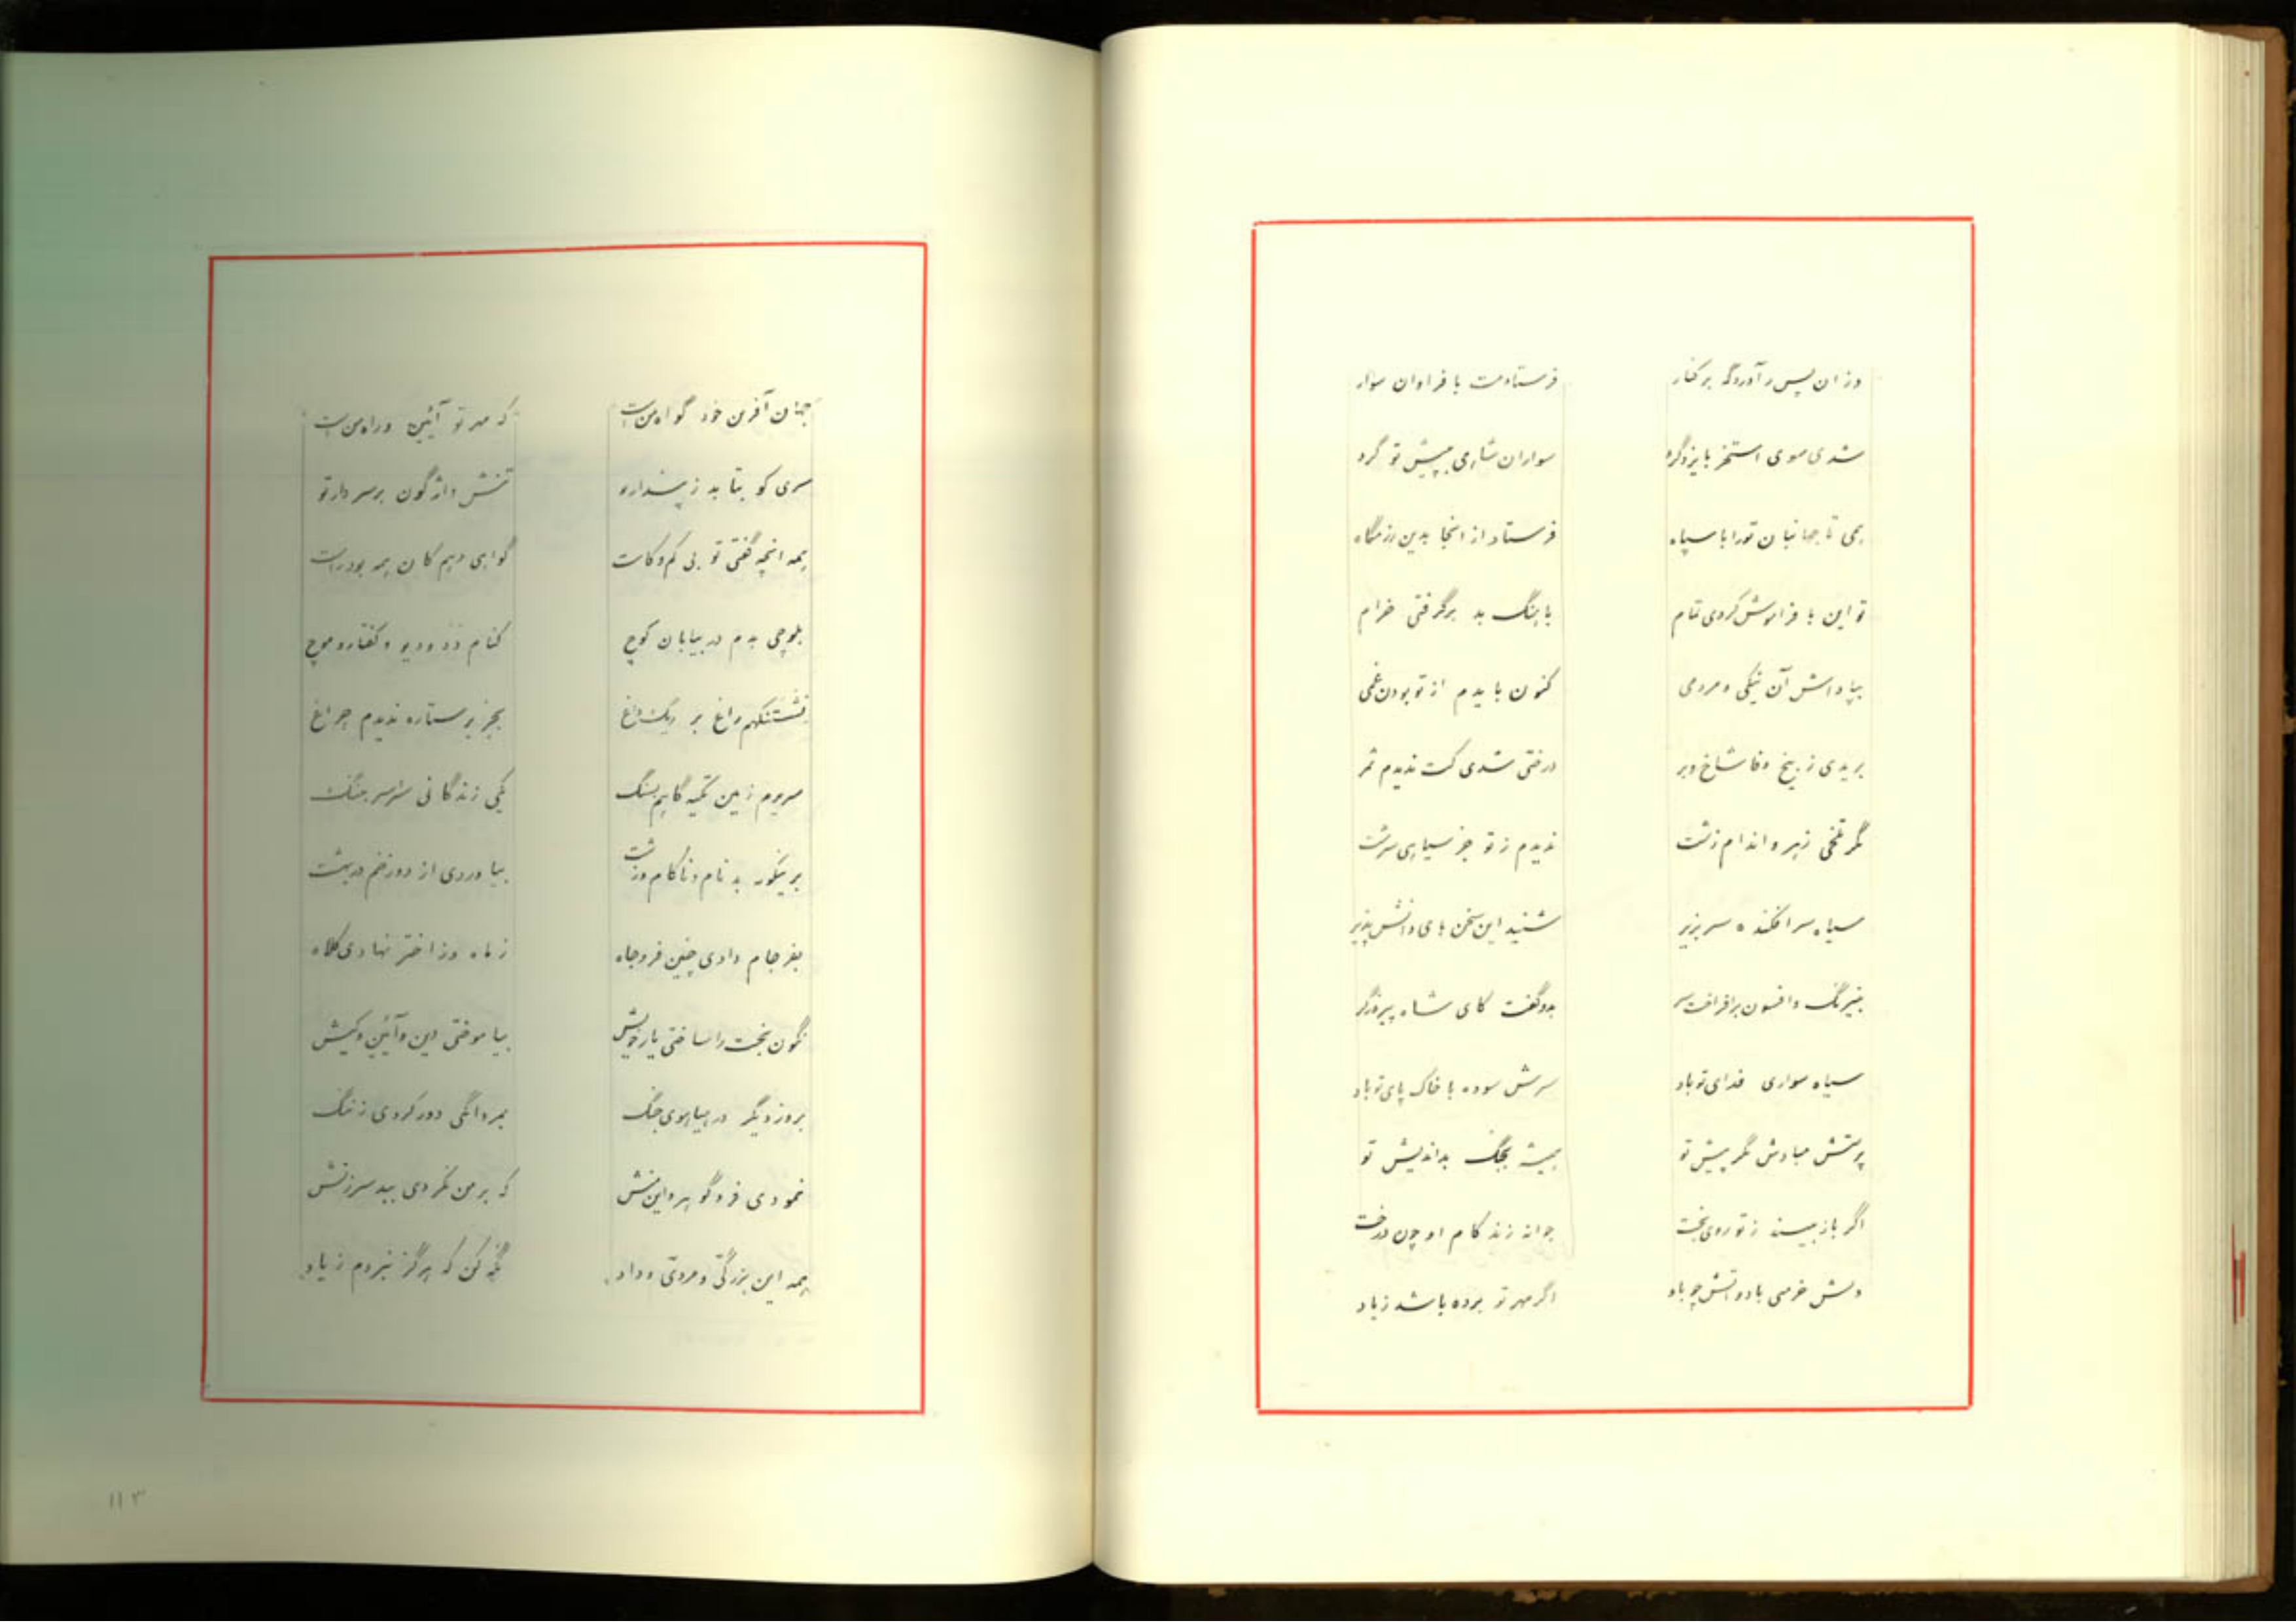 وزان پس ر آوردگه برکنار فرستادمت با فراوان سوار
شدی سوی استخر با یزدگرد سواران شاهی بپیش تو گرد
همی تا جهانبان تو را با سپاه فرستاد از انجا بدین رزمگاه
تو این با فراموش کردی تمام باهنگ بد برگرفتی خرام
بپاداش آن نیکی و مردمی کنون بایدم از تو بودن غمی
بریدی ز بیخ وفا شاخ و بر درختی شدی کت ندیدم ثمر
مگر تلخی زهر و اندام زشت ندیدم ز تو جز سیاهی سرشت
سیاه سرافکنده سر بزیر شنید این سخن های دانش پذیر
بنیرنگ و افسون برافراخت سر بدو گفت کای شاه پیروزگر
سیاه سواری فدای تو باد سرش سوده با خاک پای تو باد
پرستش مبادش مگر پیش تو همیشه بجنگ بداندیش تو
اگر باز بیند ز تو روی بخت جوانه زند کام او چون درخت
دلش خرمی باد و تنش چو باد اگر مهر تو برده باشد ز یاد
جهان آفرین خود گواه من است که مهر تو آئین و راه من است
سری کو بتابد ز پندار تو تنش واژگون بر سر دار تو
همه انچه گفتی تو بی کم و کاست گواهی دهم کان همه بود راست
بلوچی بدم در بیابان کوچ کنام دد و دیو و کفتار و موچ
نشستنگهم راغ بر ریگ داغ بجز بر ستاره ندیدم چراغ
سریرم زمین تکیه گاهم بسنگ یکی زندگانی سراسر جنگ
بر نیکور بد نام و ناکام و زشت بیاوردی از دوزخم در بهشت
بفرجام دادی چنین فر و جاه ز ماه و ز اختر نهادی کلاه
نگون بخت را ساختی یار خویش بیاموختی دین و آئین و کیش
بروز دیگر در هیاهوی جنگ بمردانگی دور کردی ز ننگ
نمودی فر و گوهر و این منش که بر من نکردی ببد سرزنش
همه این بزرگی و مردی و داد نگه کن که هرگز نبردم ز یاد
۱۱۳